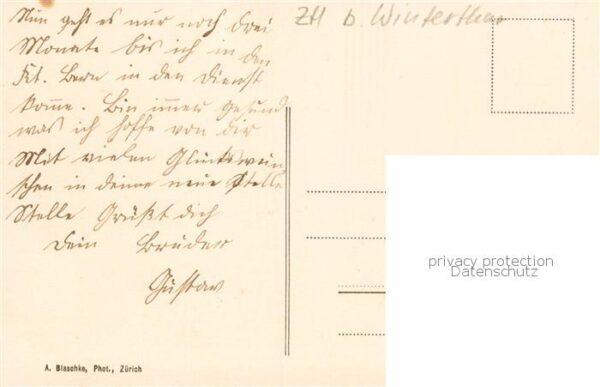 Nun geht es nur noch drei
Monate bis ich in den
Kt. Bern in den Dienst
komme. Bin immer gesund
was ich hoffe von dir
Mit vielen Glückswün
schen in deine neue Stelle
Stelle Grüßt dich
Dein Bruder
Gustav
ZH b. Winterthur
privacy protection
Datenschutz
A. Blaschke, Phot., Zürich